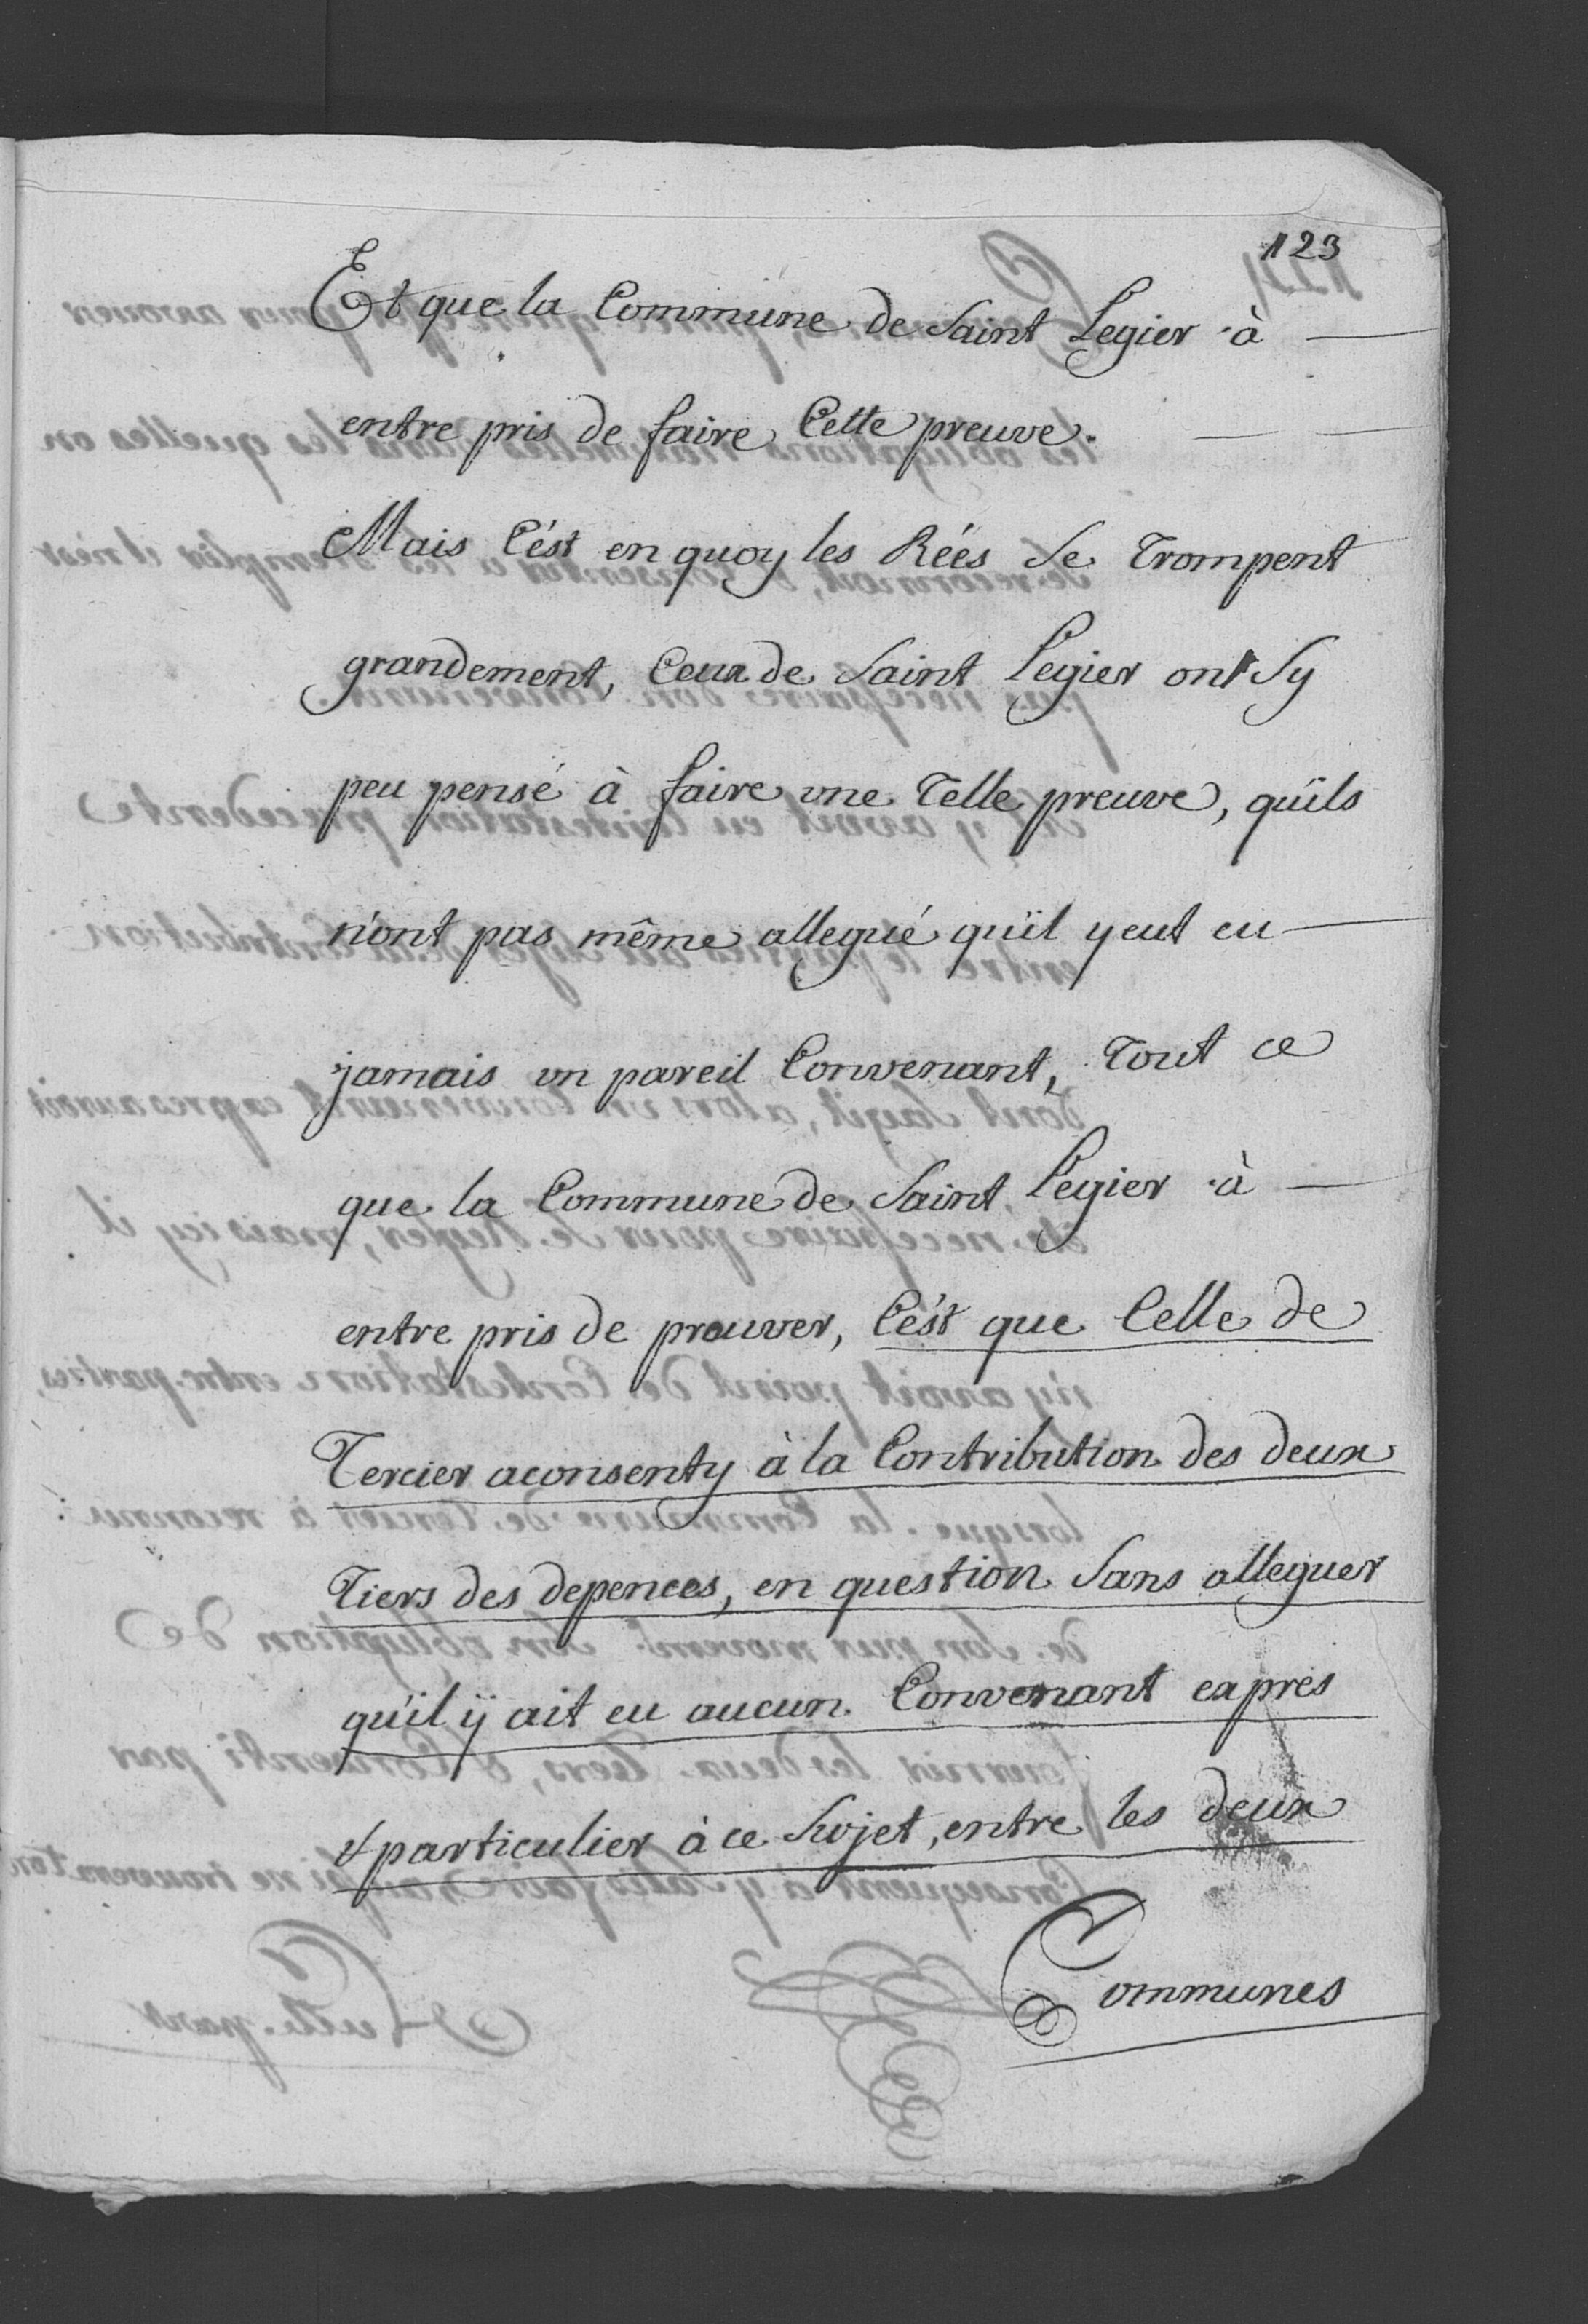 123
Et que la Commune de Saint Legier à —
entre pris de faire Cette preuve. — —
Mais C'ést en quoy les Rées se Trompent
grandement, Ceux de Saint Legier ont Sy
peu pensé à faire une Telle preuve, qu'ils
n'ont pas même allegué qu'il y eut eu —
jamais un pareil Convenant, Tout ce
que la Commune de Saint Legier à —
entre pris de prouver, C'ést que Celle de
Tercier aconsenty à la Contribution des deux
Tiers des depences, en question Sans alleguer
qu'il ÿ ait eu aucun Convenant expres
& particulier à ce Sujet, entre les deux
Communes